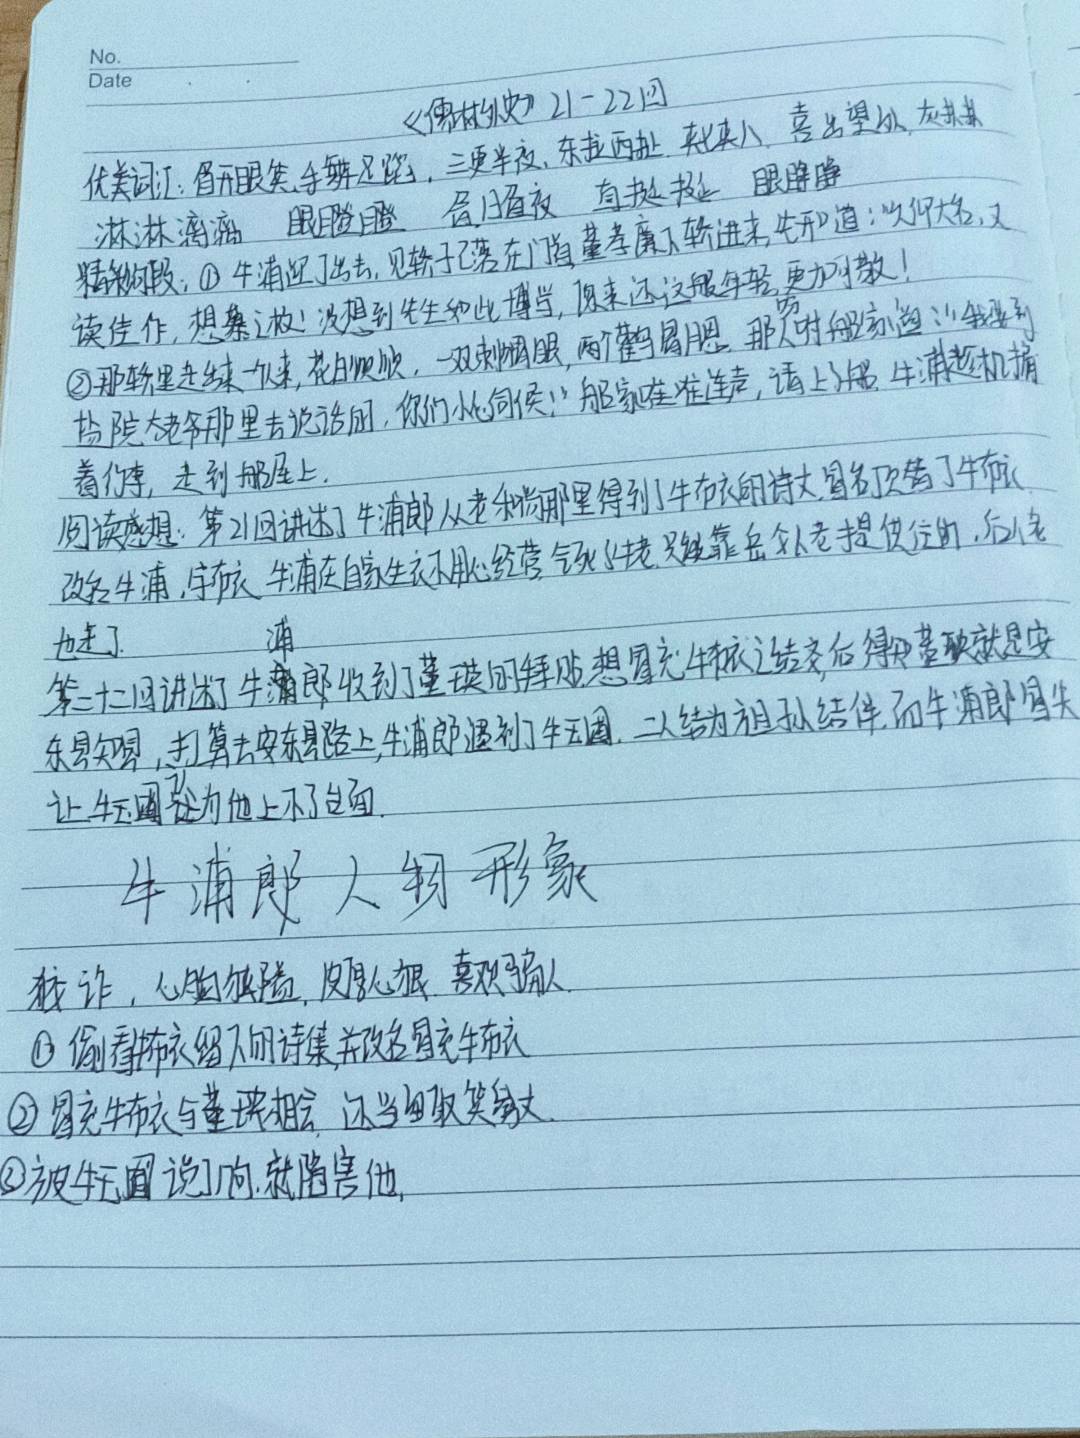 No.
Date
《儒林外史》21-22回
优美词汇：眉开眼笑、手舞足蹈，三更半夜、东拉西扯 夹七夹八、喜出望外、灰扑扑
淋淋漓漓 眼瞪瞪 直挺挺 眼睁睁
精彩句段：① 牛浦迎了出去，见轿子已落在门首，董孝廉下轿进来，先开口道：“久仰大名，又
读佳作，想慕之极！没想到先生如此博学，原来还这般年轻，更加可敬！
②那轿里走出来一个人来，花白须，一双刺猬眼，两个鹳骨腮。那人吩咐船家道：“我要到
盐院太老爷那里去说话的，你们小心伺候！”船家唯唯连声，请上了船。牛浦趁机捎
着行李，走到船尾上。
阅读感想：第21回讲述了牛浦郎从老和尚那里得到了牛布衣的诗文，冒名顶替了牛布衣，
改名牛浦，字布衣 牛浦在自家生意不用心经营 气死牛老 只能靠岳父提供住的，后
也走了
浦
第二十二回讲述了牛浦郎收到了董瑛的拜贴，想冒充牛布衣之结交，后得知董瑛就是安
东县知县，打算去安东县路上，牛浦郎遇到了牛玉圃，二人结为祖孙结伴，而牛浦郎冒失
让牛玉圃认为他上不了台面。
牛浦郎人物形象
狡诈，心胸狭隘，皮厚心狠 喜欢骗人
①偷看牛布衣留下的诗集，并改名冒充牛布衣
②冒充牛布衣与董瑛相会，还当面取笑舅丈
③被牛玉圃说了一句，就陷害他，